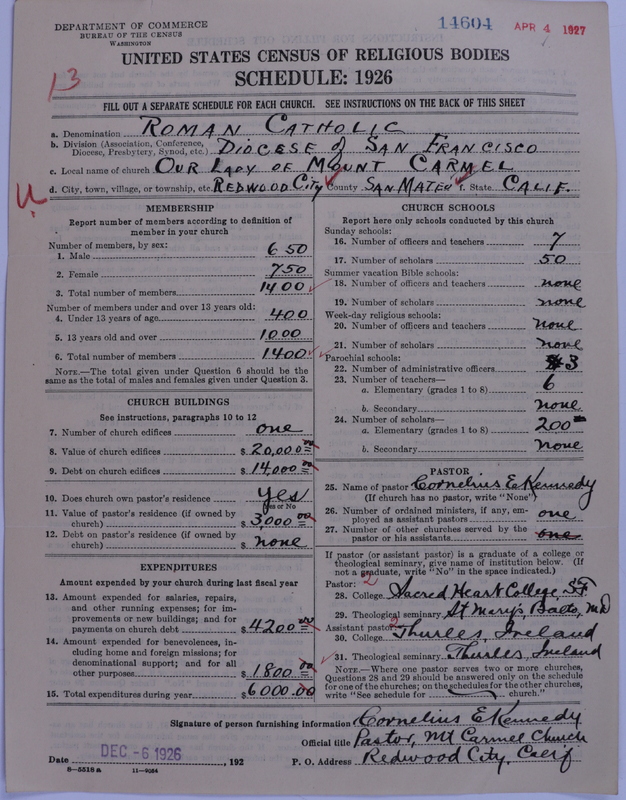 DEPARTMENT OF COMMERCE
BUREAU OF THE CENSUS
WASHINGTON
14604
APR 4 1927
UNITED STATES CENSUS OF RELIGIOUS BODIES
SCHEDULE: 1926
13
FILL OUT A SEPARATE SCHEDULE FOR EACH CHURCH. SEE INSTRUCTIONS ON THE BACK OF THIS SHEET
a. Denomination ROMAN CATHOLIC
b. Division (Association, Conference, Diocese, Presbytery, Synod, etc.) DIOCESE of SAN FRANCISCO
c. Local name of church OUR LADY OF MOUNT CARMEL
d. City, town, village, or township, etc. REDWOOD City County SAN MATEO f. State CALIF.
MEMBERSHIP
Report number of members according to definition of
member in your church
Number of members, by sex:
1. Male 650
2. Female 750
3. Total number of members 1400
Number of members under and over 13 years old:
4. Under 13 years of age 400
5. 13 years old and over 1000
6. Total number of members 1400
NOTE.—The total given under Question 6 should be the
same as the total of males and females given under Question 3.
CHURCH BUILDINGS
See instructions, paragraphs 10 to 12
7. Number of church edifices one
8. Value of church edifices $ 20,000 00
9. Debt on church edifices $ 14,000 00
10. Does church own pastor's residence yes
Yes or No
11. Value of pastor's residence (if owned by
church) $ 3,000 00
12. Debt on pastor's residence (if owned by
church) $ none
EXPENDITURES
Amount expended by your church during last fiscal year
13. Amount expended for salaries, repairs,
and other running expenses; for im-
provements or new buildings; and for
payments on church debt $ 4200 00
14. Amount expended for benevolences, in-
cluding home and foreign missions; for
denominational support; and for all
other purposes $ 1800 00
15. Total expenditures during year $ 6000.00
CHURCH SCHOOLS
Report here only schools conducted by this church
Sunday schools:
16. Number of officers and teachers 7
17. Number of scholars 50
Summer vacation Bible schools:
18. Number of officers and teachers none
19. Number of scholars none
Week-day religious schools:
20. Number of officers and teachers none
21. Number of scholars none
Parochial schools:
22. Number of administrative officers 3
23. Number of teachers—
a. Elementary (grades 1 to 8) 6
b. Secondary none
24. Number of scholars—
a. Elementary (grades 1 to 8) 200
b. Secondary none
PASTOR
25. Name of pastor Cornelius E Kennedy
(If church has no pastor, write "None")
26. Number of ordained ministers, if any, em-
ployed as assistant pastors one
27. Number of other churches served by the
pastor or his assistants one
If pastor (or assistant pastor) is a graduate of a college or
theological seminary, give name of institution below. (If
not a graduate, write "No" in the space indicated.)
Pastor: 2
28. College Sacred Heart College, SF
29. Theological seminary St Mary's Balto, Md
Assistant pastor: 2
30. College Thurles, Ireland
31. Theological seminary Thurles, Ireland
NOTE.—Where one pastor serves two or more churches,
Questions 28 and 29 should be answered only on the schedule
for one of the churches; on the schedules for the other churches,
write "See schedule for church."
Signature of person furnishing information Cornelius E Kennedy
Official title Pastor, Mt Carmel Church
Date DEC -6 1926, 192 P. O. Address Redwood City, Calif
8—5518 a 11—9084